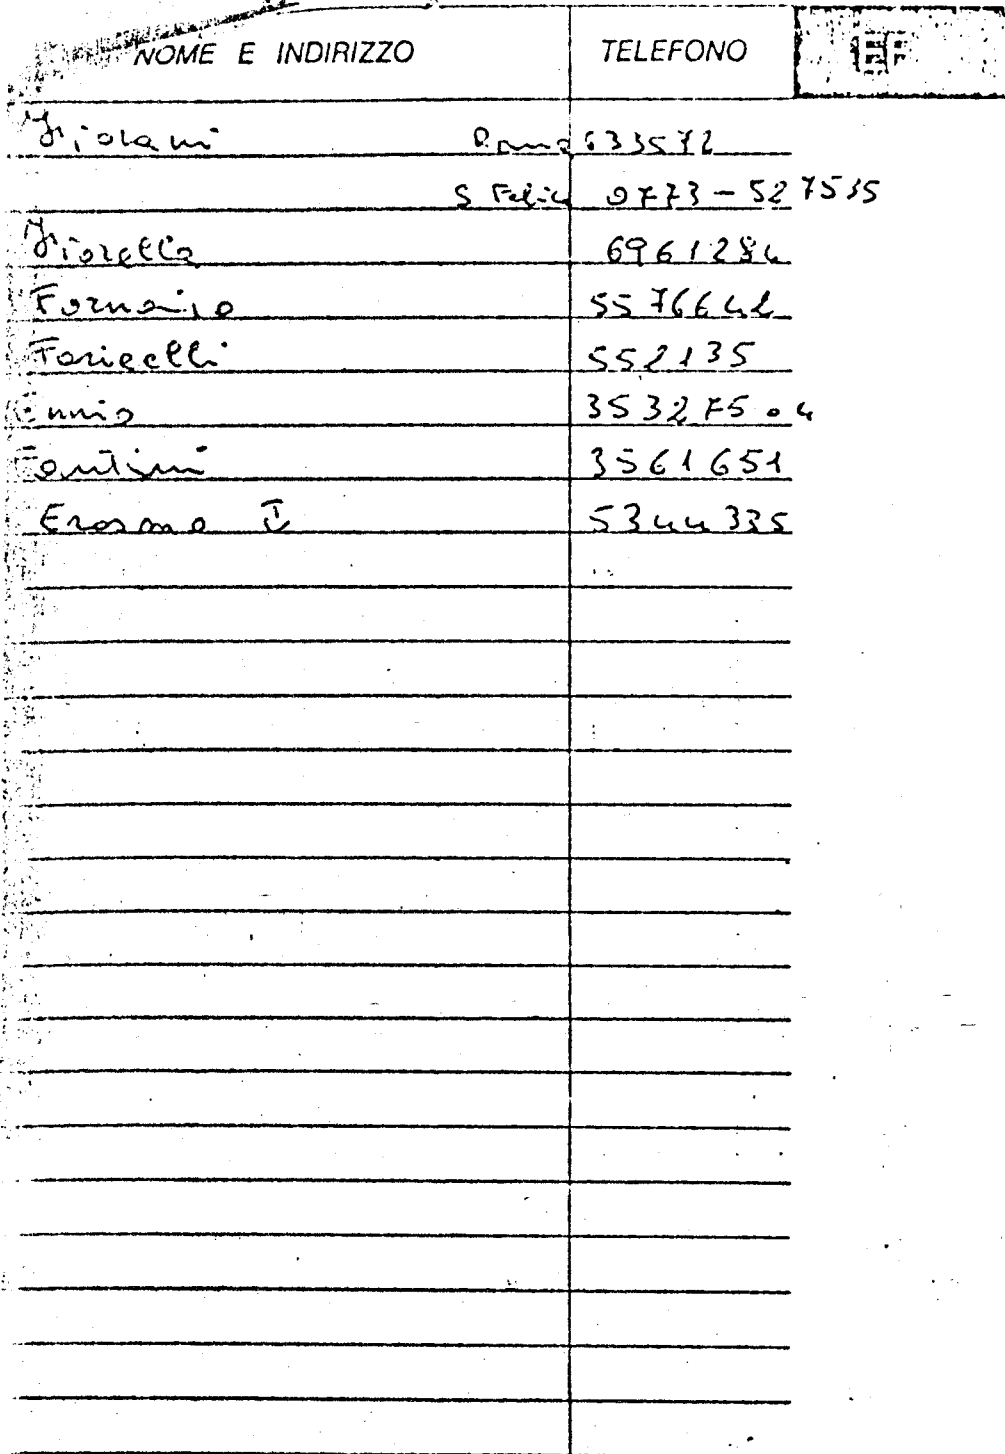 NOME E INDIRIZZO TELEFONO EF
Fiorani Roma 633572
S Felice 0773-527535
Fiorella 6961284
Fornaio 5576642
Faricelli 552135
Ennio 353275.4
Fantini 3561651
Erasmo I 5344335